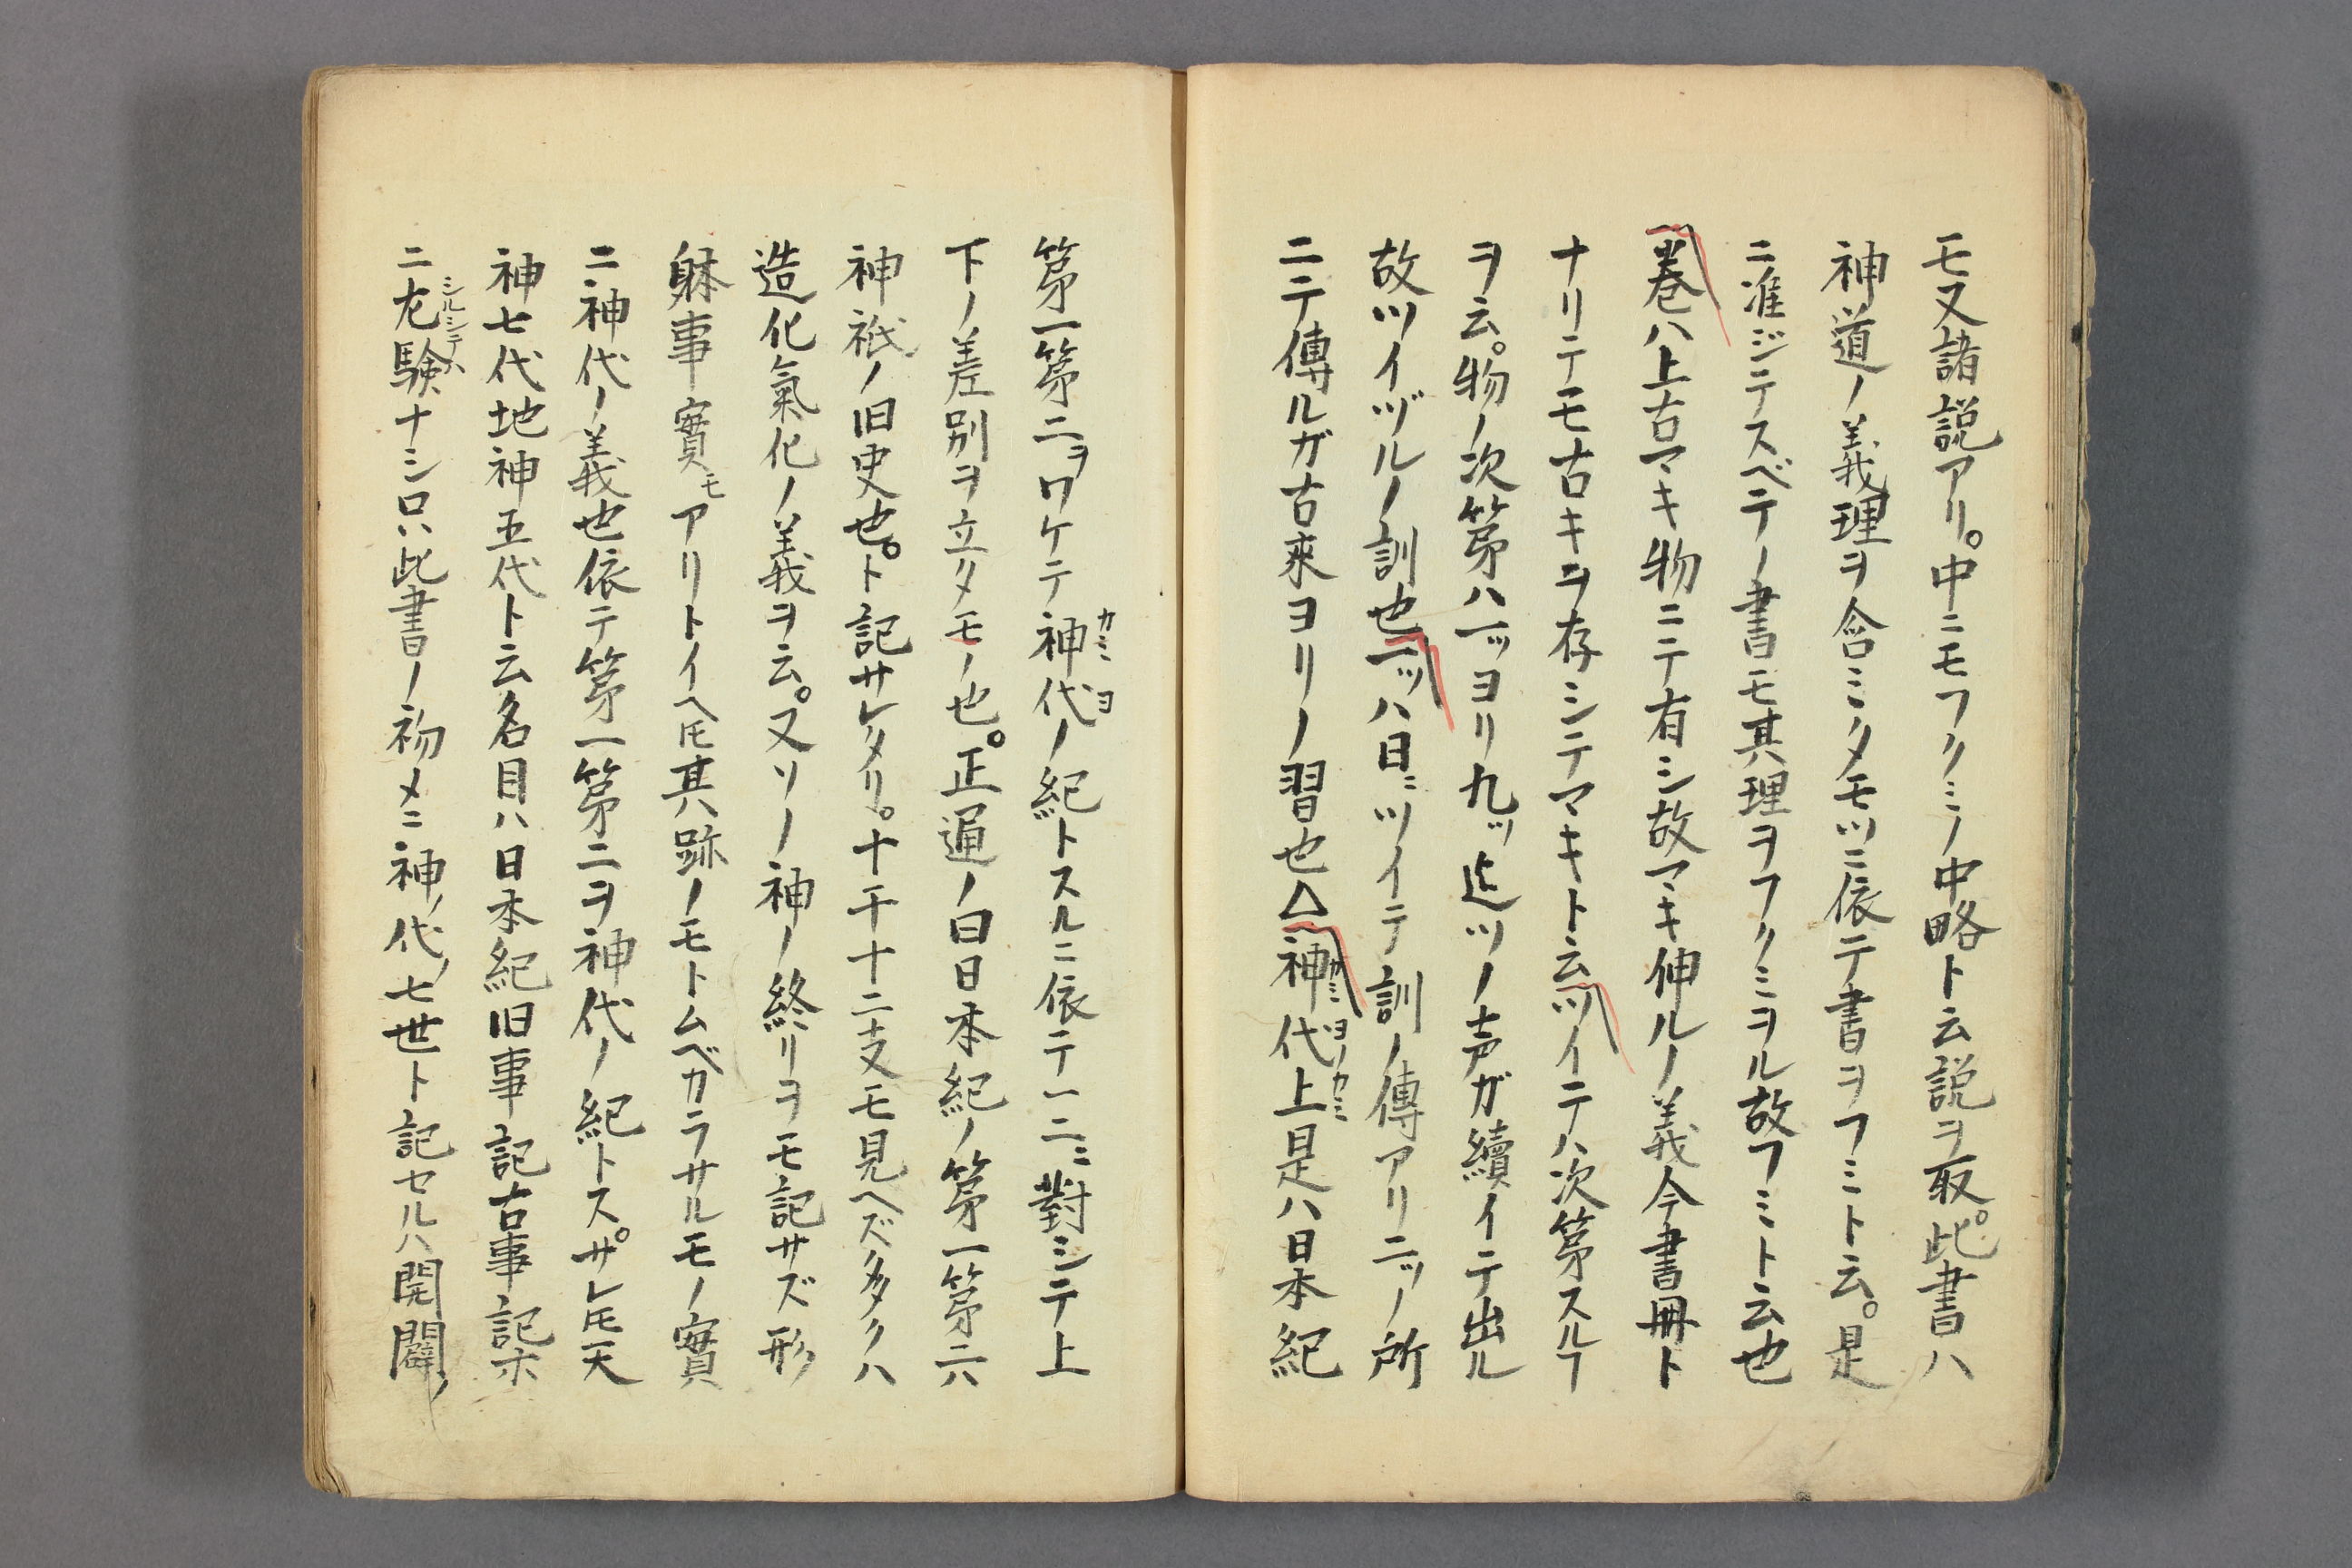 モ又諸説アリ。中ニモフクミノ中略ト云説ヲ取。此書ハ
神道ノ義理ヲ含ミタモツニ依テ書ヲフミト云。是
ニ准ジテスベテノ書モ其理ヲフクミヲル故フミト云也
巻ハ上古マキ物ニテ有シ故マキ伸ルノ義今書冊ト
ナリテモ古キヲ存シテマキト云ツイテハ次第スルヿ
ヲ云。物ノ次第ハ一ッヨリ九ッ迄ツノ声ガ續イテ出ル
故ツイヅルノ訓也一ッハ日ニツイテ訓ノ傳アリ二ッノ所
ニテ傳ルガ古来ヨリノ習也△神代上是ハ日本紀
カミ ヨノカミ
第一第二ヲワケテ神代ノ紀トスルニ依テ一二ニ對シテ上
カミ ヨ
下ノ差別ヲ立タモノ也。正通ノ曰日本紀ノ第一第二ハ
神祇ノ旧史也。ト記サレタリ。十干十二支モ見ヘズ多クハ
造化氣化ノ義ヲ云。又ソノ神ノ終リヲモ記サズ形
躰事實モアリトイヘ𪜈其跡ノモトムベカラサルモノ實
ニ神代ノ義也依テ第一第二ヲ神代ノ紀トス。サレ𪜈天
神七代地神五代ト云名目ハ日本紀旧事記古事記ホ
ニ尤験ナシ只此書ノ初メニ神ノ代ノ七世ト記セルハ開闢ノ
シルシテハ